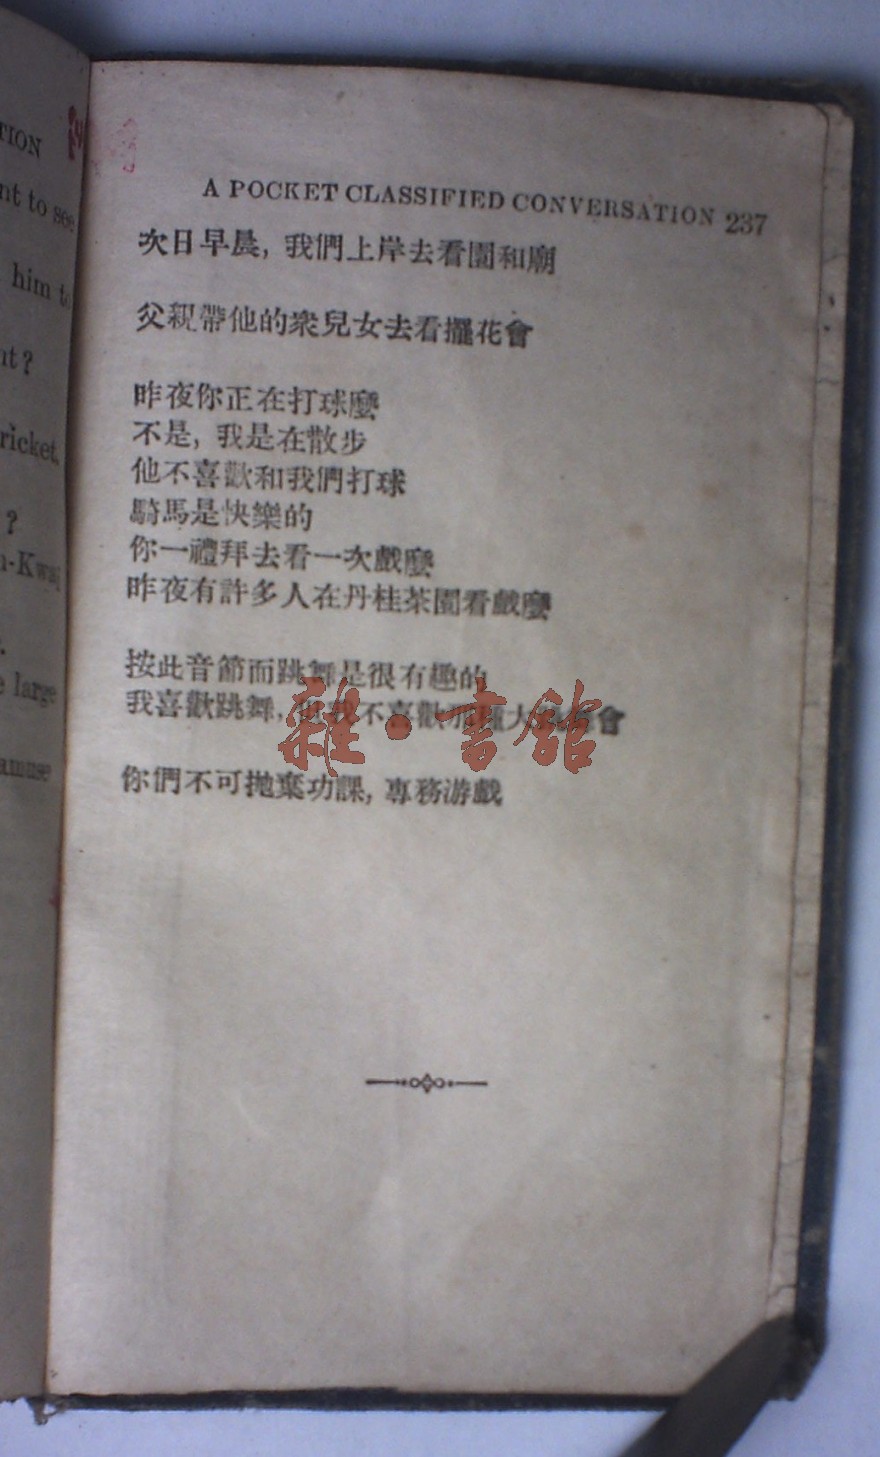 TION
nt to see
him to
nt?
ricket.
?
n-Kwei
.
e large
amuse
A POCKET CLASSIFIED CONVERSATION 237
次日早晨, 我們上岸去看園和廟
父親帶他的衆兒女去看擺花會
昨夜你正在打球麼
不是, 我是在散步
他不喜歡和我們打球
騎馬是快樂的
你一禮拜去看一次戲麼
昨夜有許多人在丹桂茶園看戲麼
按此音節而跳舞是很有趣的
我喜歡跳舞, 但我不喜歡那種大跳舞會
你們不可拋棄功課, 專務游戲
雜·書館